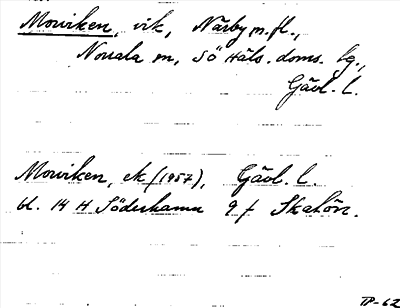 Morviken, vik, Närby m.fl.,
Norrala sn, SÖ Häls. doms. lg.,
Gävl. l.
Morviken, ek (1957), Gävl. l.
bl. 14 H Söderhamn 9 f Skatön.
TP-62